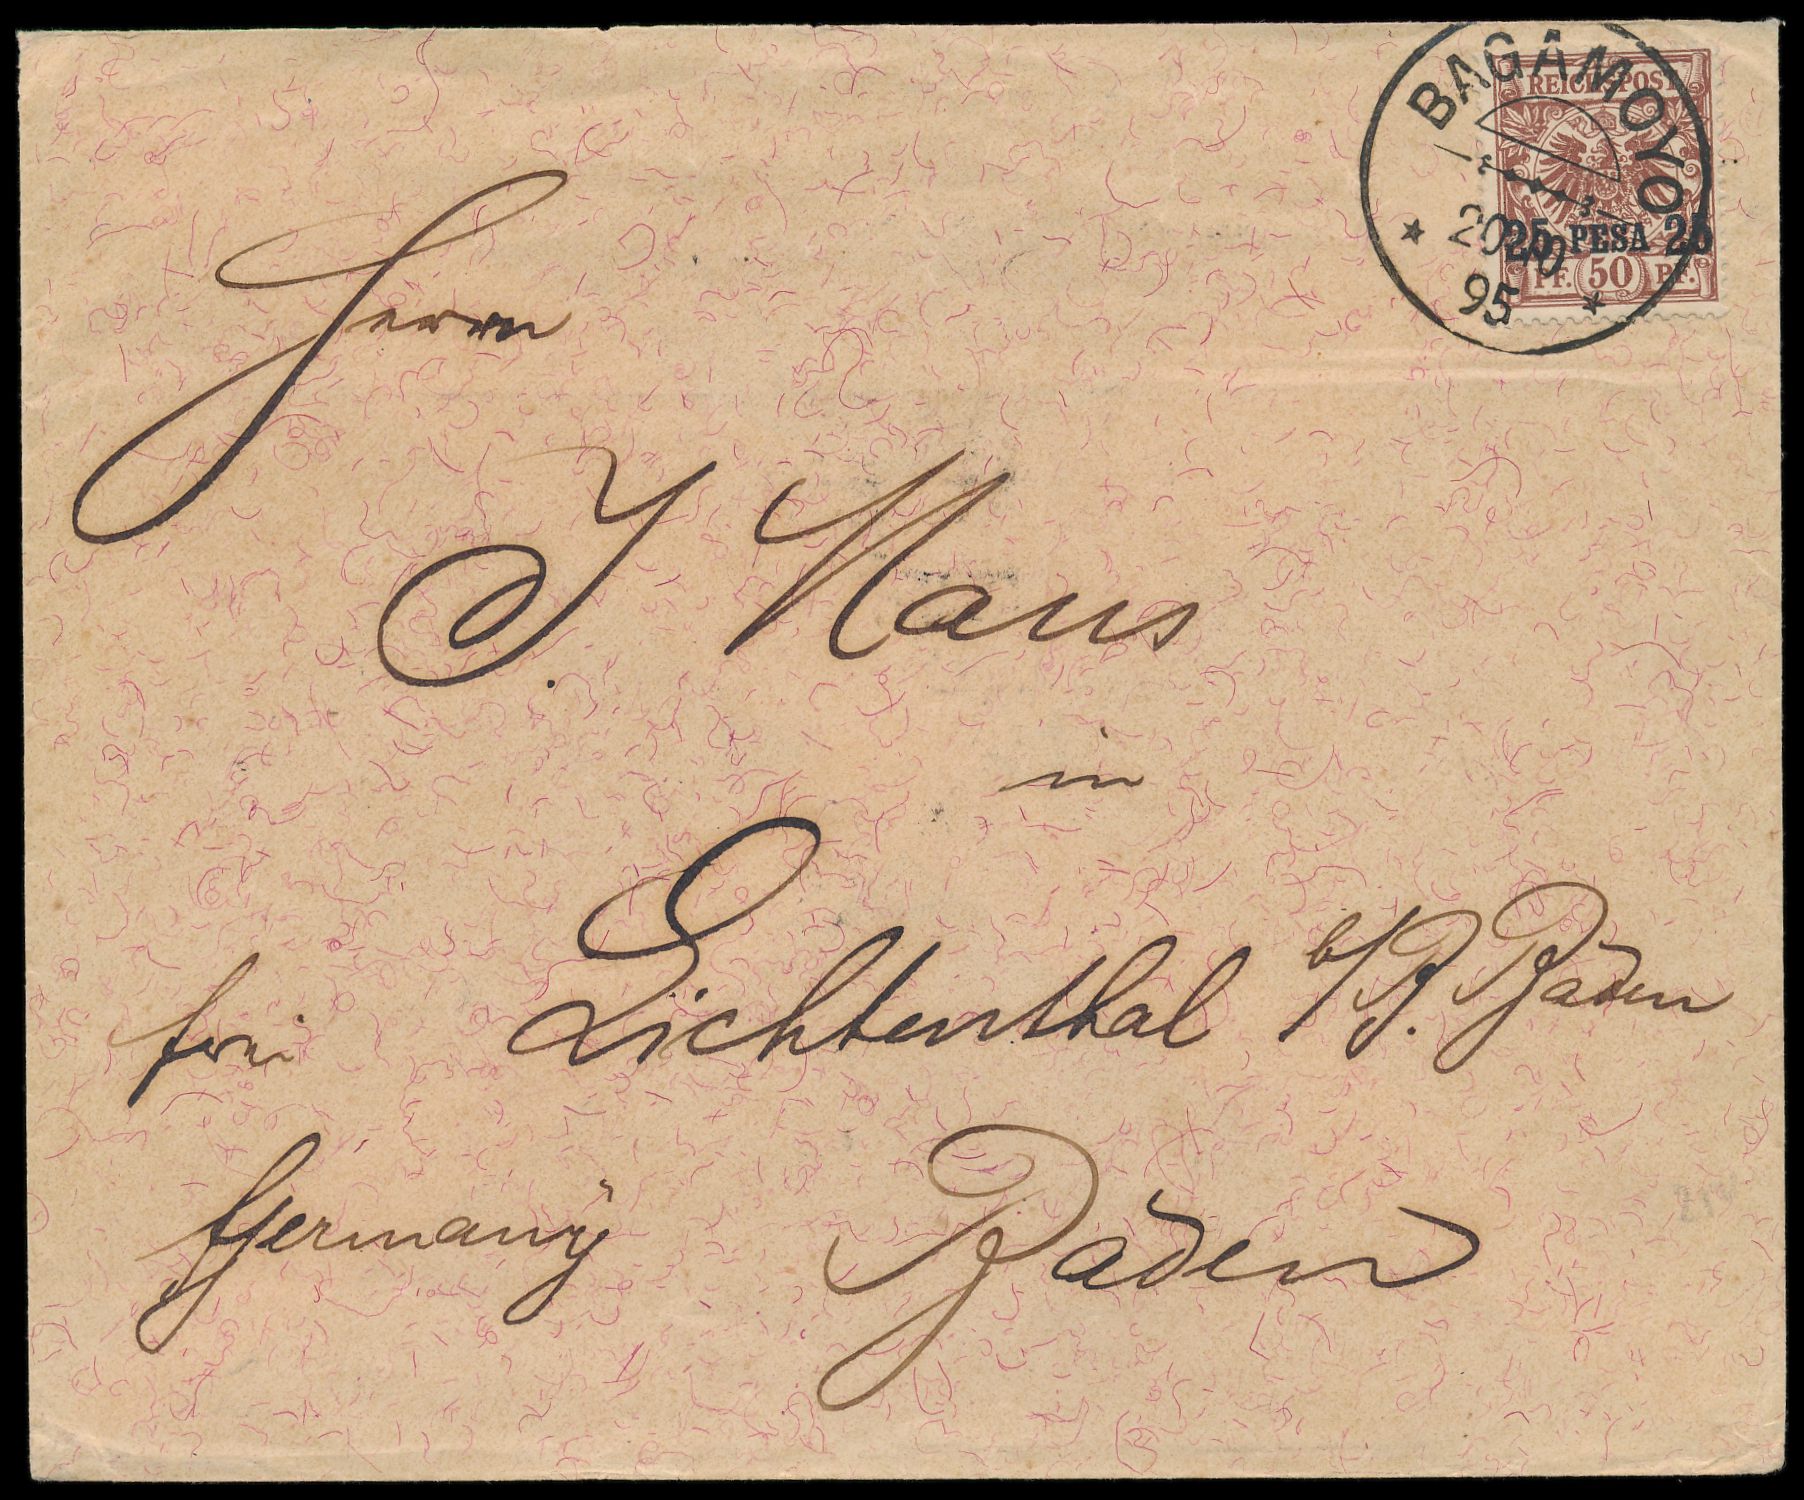 BAGAMOYO
20 10
95
REICHSPOST
25 PESA 25
PF. 50 PF.
Herrn
J. Haus
in
frei Lichtenthal b/B. Baden
Germany Baden